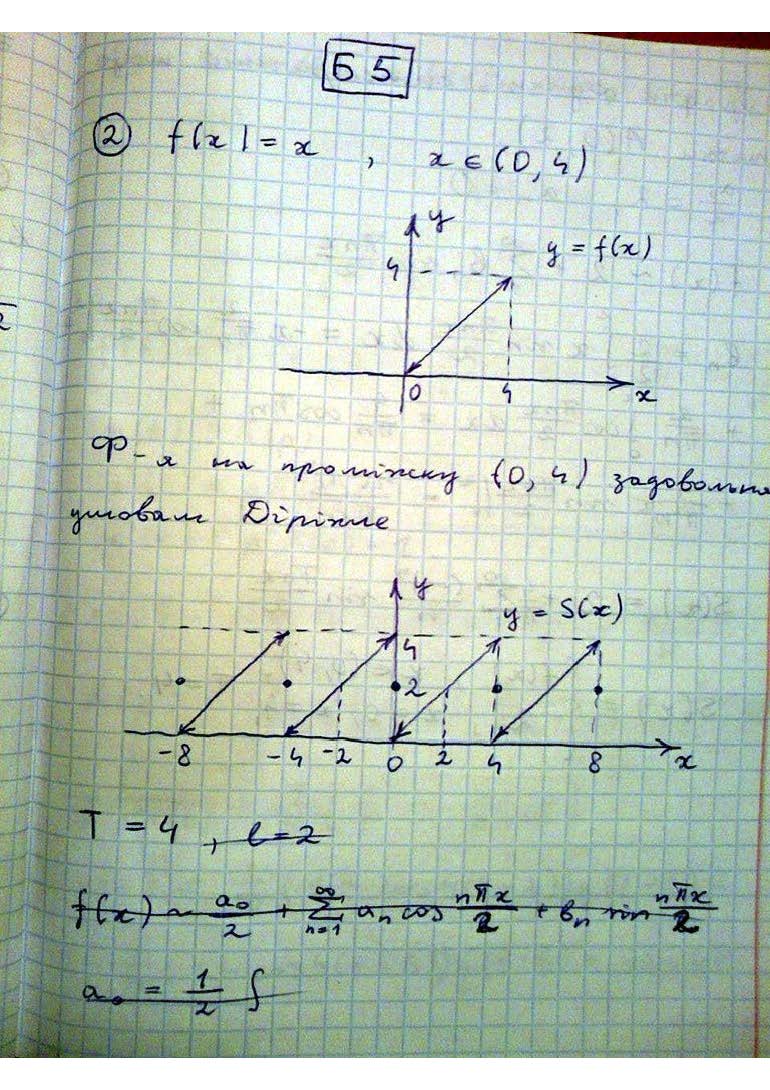 Б 5
② f(x) = x , x ∈ (0, 4)
y
4
y = f(x)
0 4 x
Ф-я на проміжку (0, 4) задовольня
умовам Діріхле
y
y = S(x)
4
2
-8 -4 -2 0 2 4 8 x
T = 4 , l = 2
f(x) ~ a₀/2 + ∑ₙ₌₁^∞ aₙ cos nπx/2 + bₙ sin nπx/2
a₀ = 1/2 ∫